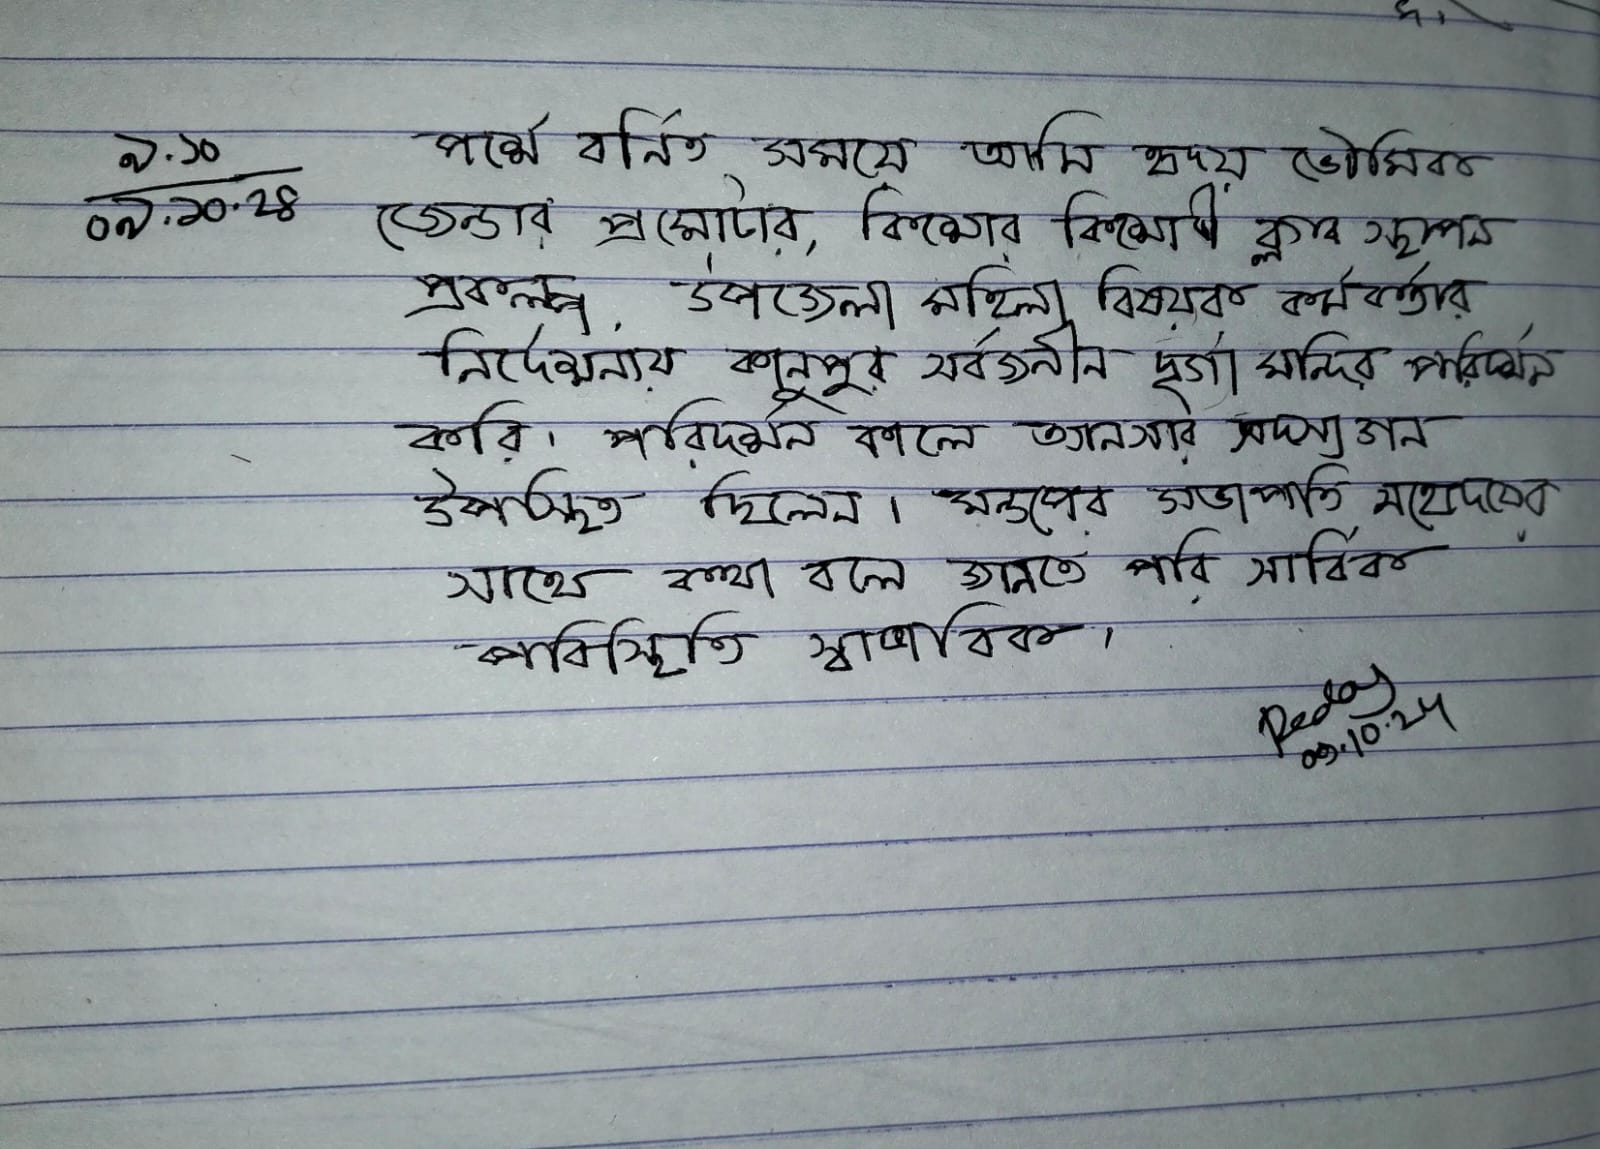 ৯.১০
০৯.১০.২৪
পার্শ্বে বর্নিত সময়ে আমি হৃদয় ভৌমিক
জেন্ডার প্রমোটার, কিশোর কিশোরী ক্লাব স্থাপন
প্রকল্প, উপজেলা মহিলা বিষয়ক কর্মকর্তার
নির্দেশনায় কানুপুর সর্বজনীন দূর্গা মন্দির পরিদর্শন
করি। পরিদর্শন কালে আনসার সদস্যজন
উপস্থিত ছিলেন। মন্ডপের সভাপতি মহোদয়ের
সাথে কথা বলে জানতে পারি সার্বিক
পরিস্থিতি স্বাভাবিক।
09.10.24